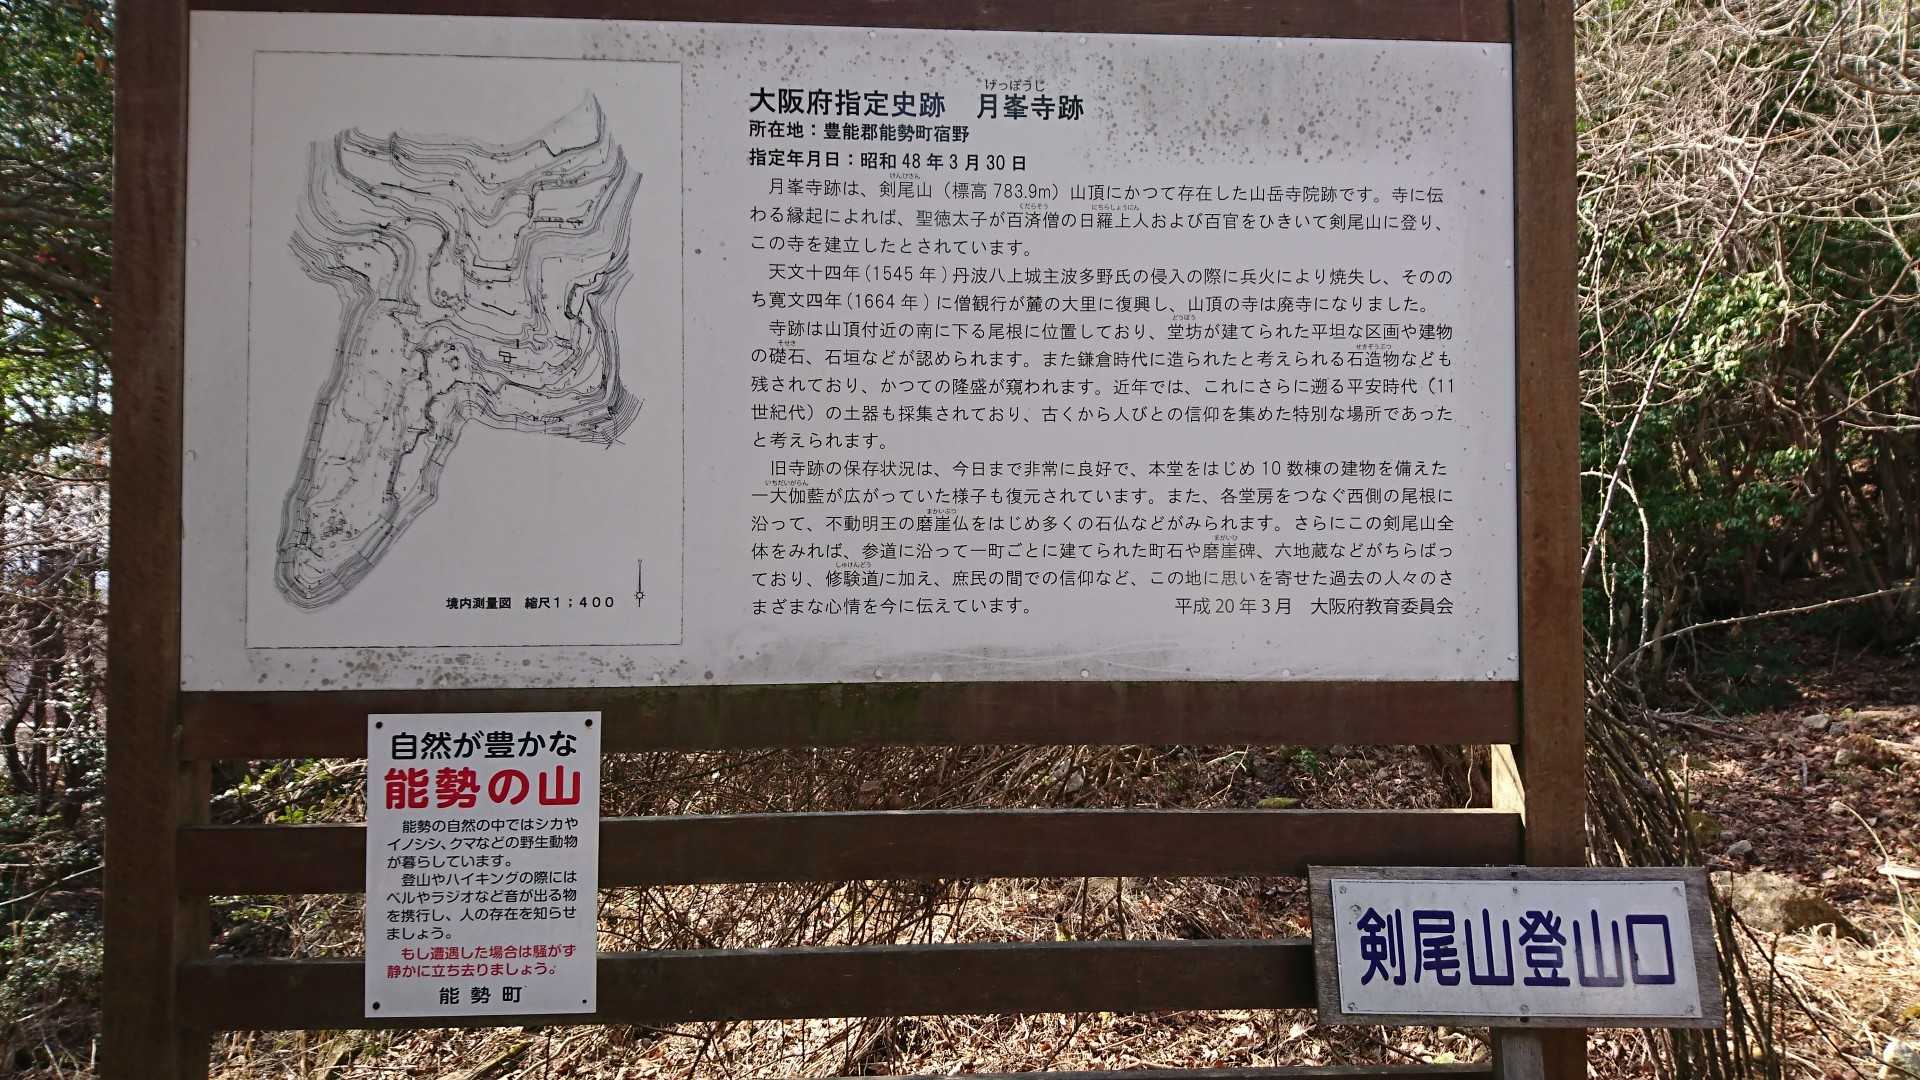 げっぽうじ
大阪府指定史跡　月峯寺跡
所在地：豊能郡能勢町宿野
指定年月日：昭和48年3月30日
けんびさん
月峯寺跡は、剣尾山（標高783.9m）山頂にかつて存在した山岳寺院跡です。寺に伝
くだらそう　にちらしょうにん
わる縁起によれば、聖徳太子が百済僧の日羅上人および百官をひきいて剣尾山に登り、
この寺を建立したとされています。
天文十四年(1545年)丹波八上城主波多野氏の侵入の際に兵火により焼失し、そのの
ち寛文四年(1664年)に僧観行が麓の大里に復興し、山頂の寺は廃寺になりました。
どうぼう
寺跡は山頂付近の南に下る尾根に位置しており、堂坊が建てられた平坦な区画や建物
そせき　せきぞうぶつ
の礎石、石垣などが認められます。また鎌倉時代に造られたと考えられる石造物なども
残されており、かつての隆盛が窺われます。近年では、これにさらに遡る平安時代（11
世紀代）の土器も採集されており、古くから人びとの信仰を集めた特別な場所であった
と考えられます。
旧寺跡の保存状況は、今日まで非常に良好で、本堂をはじめ10数棟の建物を備えた
いちだいがらん
一大伽藍が広がっていた様子も復元されています。また、各堂房をつなぐ西側の尾根に
まがいぶつ
沿って、不動明王の磨崖仏をはじめ多くの石仏などがみられます。さらにこの剣尾山全
まがいひ
体をみれば、参道に沿って一町ごとに建てられた町石や磨崖碑、六地蔵などがちらばっ
しゅげんどう
ており、修験道に加え、庶民の間での信仰など、この地に思いを寄せた過去の人々のさ
まざまな心情を今に伝えています。　平成20年3月　大阪府教育委員会
境内測量図　縮尺1；400
自然が豊かな
能勢の山
能勢の自然の中ではシカや
イノシシ、クマなどの野生動物
が暮らしています。
登山やハイキングの際には
ベルやラジオなど音が出る物
を携行し、人の存在を知らせ
ましょう。
もし遭遇した場合は騒がず
静かに立ち去りましょう。
能勢町
剣尾山登山口